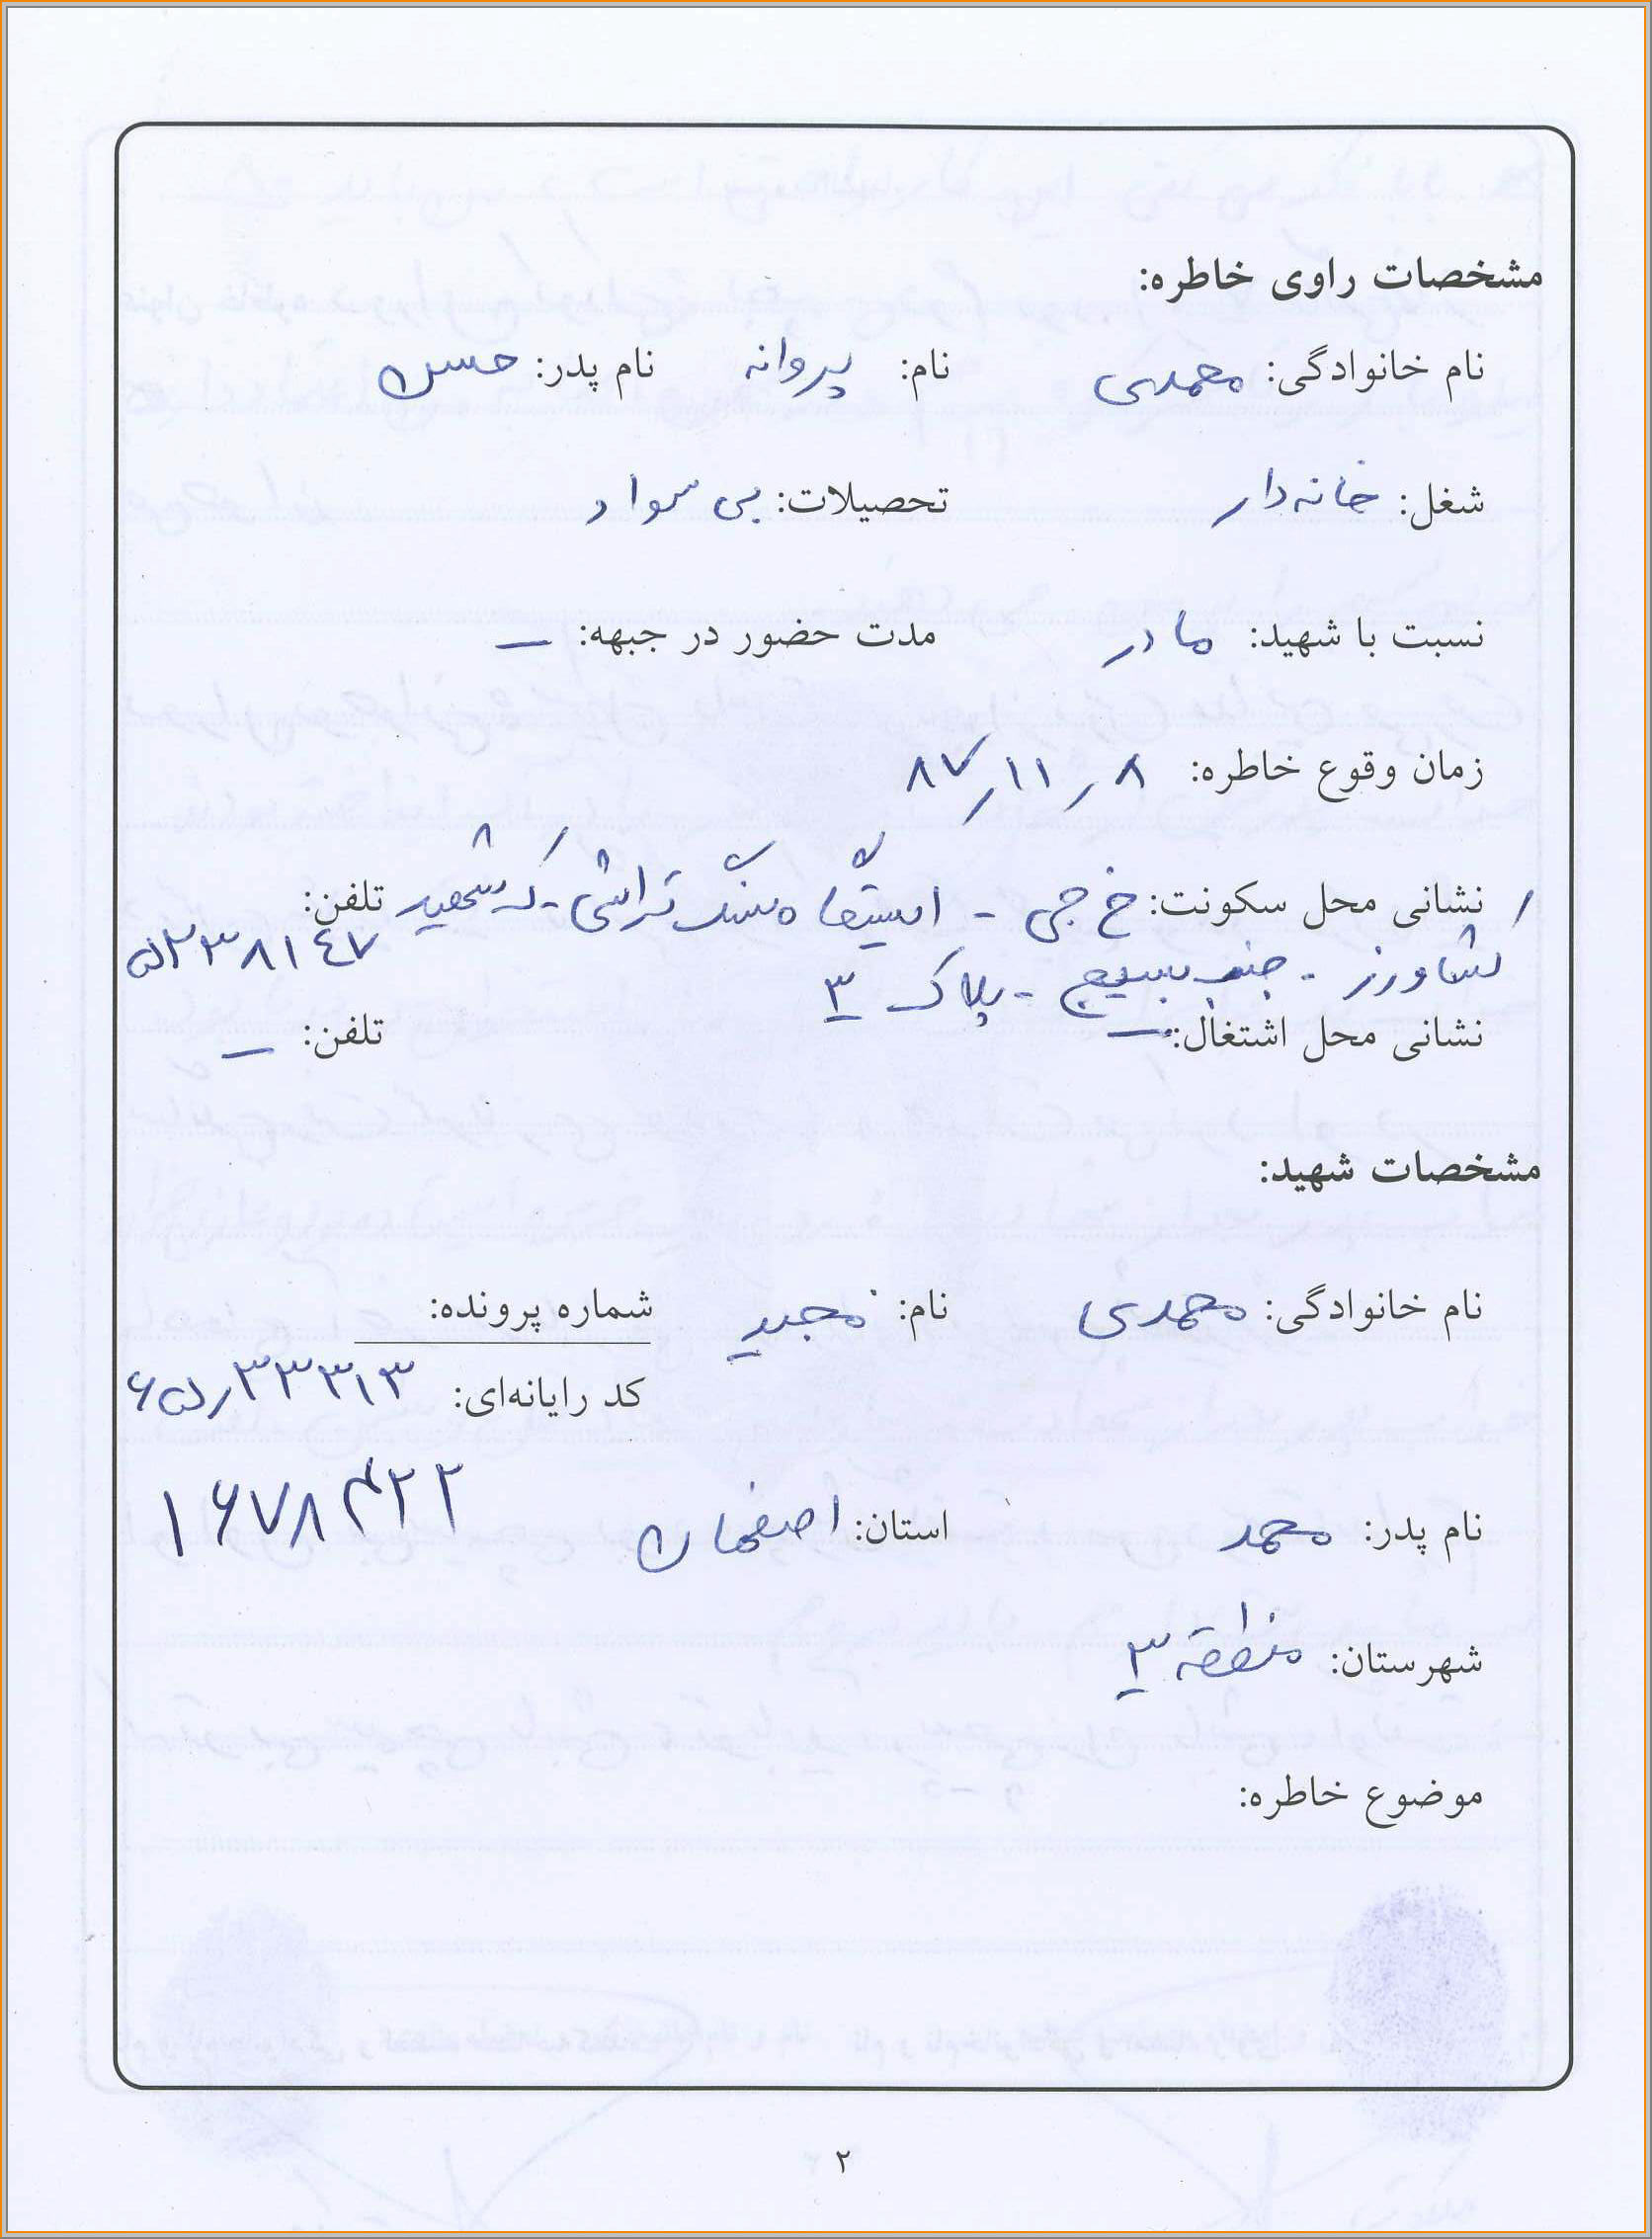 مشخصات راوی خاطره:
نام خانوادگی: محمدی نام: پروانه نام پدر: حسن
شغل: خانه‌دار تحصیلات: بی سواد
نسبت با شهید: مادر مدت حضور در جبهه: –
زمان وقوع خاطره: ۸۷/۱۱/۸
نشانی محل سکونت: خ جی - ایستگاه سنگ تراشی - ک شهید تلفن:
کشاورز - جنب بسیج - پلاک ۳ ۵۲۳۸۱۴۷
نشانی محل اشتغال: – تلفن: –
مشخصات شهید:
نام خانوادگی: محمدی نام: مجید شماره پرونده:
کد رایانه‌ای: ۶۵/۳۳۳۱۳
۱۶۷۸۴۲۲
نام پدر: محمد استان: اصفهان
شهرستان: منطقه ۳
موضوع خاطره:
۲